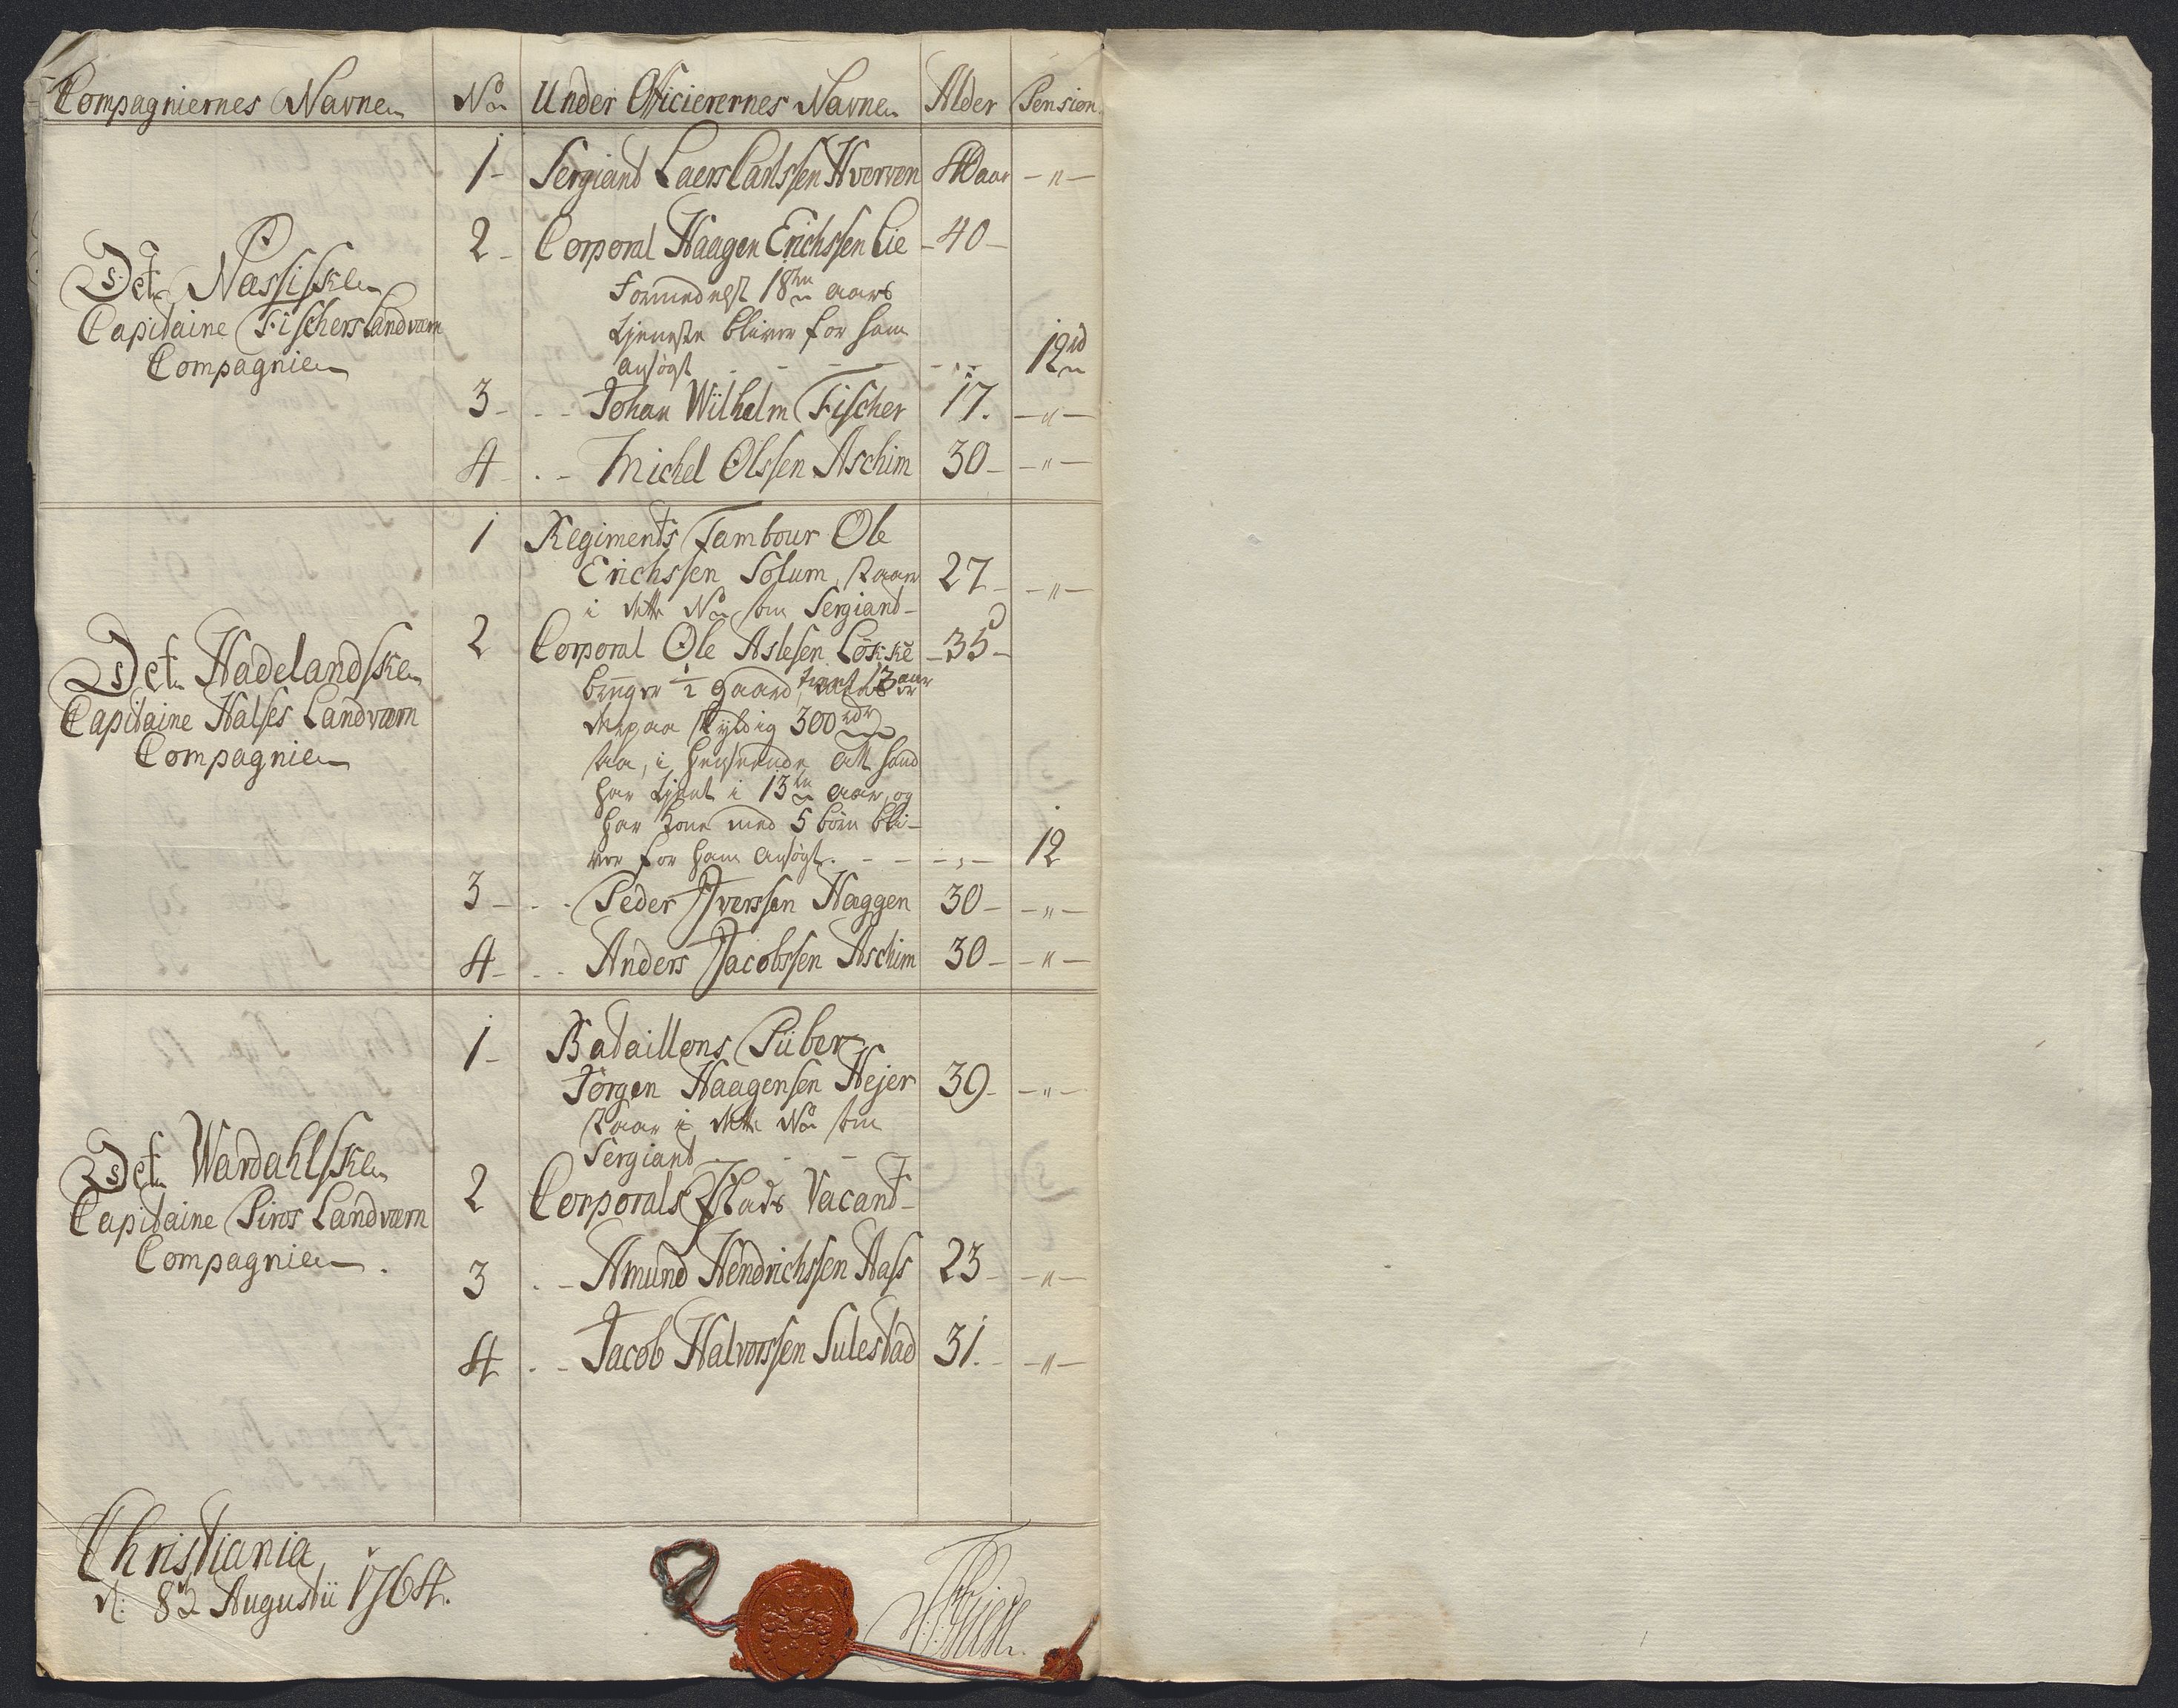 Compagniernes Navne No Under Officierernes Navne Alder Pension
Det Næssiske
Capitaine Fischers Landværn
Compagnie
1 - Sergiant Laers Carlssen Hvorven 40 aar - " -
2 - Corporal Haagen Erichssen Lie - 40 -
Formedelst 18ten aars
tjeneste bliver for ham
ansögt - - - - - 12 rd
3 - - - Johan Wilhelm Fischer 17. - " -
4 - - - Michel Olssen Aschim 30 - - " -
Det Hadelandske
Capitaine Halses Landværn
Compagnie
1 Regiments Tambour Ole
Erichssen Solum, staar 27 - - " -
i dette No som Sergiant -
2 Corporal Ole Aslesen Lökke - 35 -
bruger 1/2 gaard, tient 13 aar
derpaa skyldig 300 rdr
saa, i henseende att hand
har tjent i 13ten aar, og
har kone med 5 börn bli-
ver for ham ansögt. - - - , - 12
3 - - - Peder Iverssen Haggen 30 - - " -
4 - - - Anders Jacobssen Aschim 30 - - " -
Det Wardahlske
Capitaine Piros Landværn
Compagnie.
1 - Bataillons Piiber
Jörgen Haagensen Hejer 39 - - " -
staar i dette No som
Sergiant - - -
2 Corporals Plads Vacant -
3 - - Amund Hendrichssen Aass 23 - - " -
4 - - Jacob Halvorssen Sulestad 31. - - " -
Christiania
d: 8de Augustii 1764.